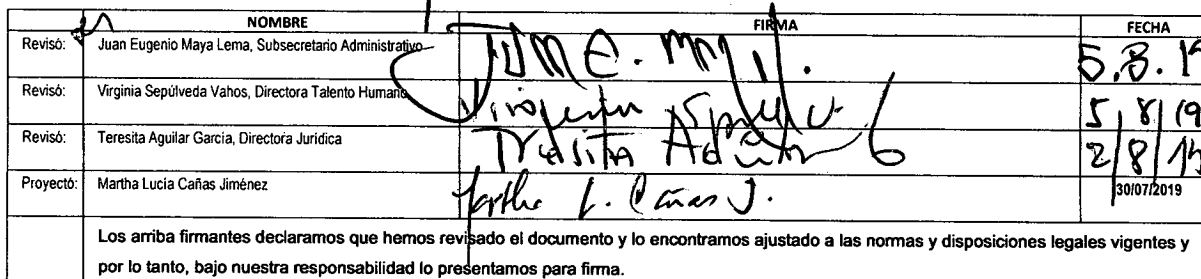 NOMBRE FIRMA FECHA
Revisó: Juan Eugenio Maya Lema, Subsecretario Administrativo 5.8.19
Revisó: Virginia Sepúlveda Vahos, Directora Talento Humano 5/8/19
Revisó: Teresita Aguilar García, Directora Jurídica Teresita Aguilar 2/8/19
Proyectó: Martha Lucía Cañas Jiménez Martha L. Cañas J. 30/07/2019
Los arriba firmantes declaramos que hemos revisado el documento y lo encontramos ajustado a las normas y disposiciones legales vigentes y
por lo tanto, bajo nuestra responsabilidad lo presentamos para firma.